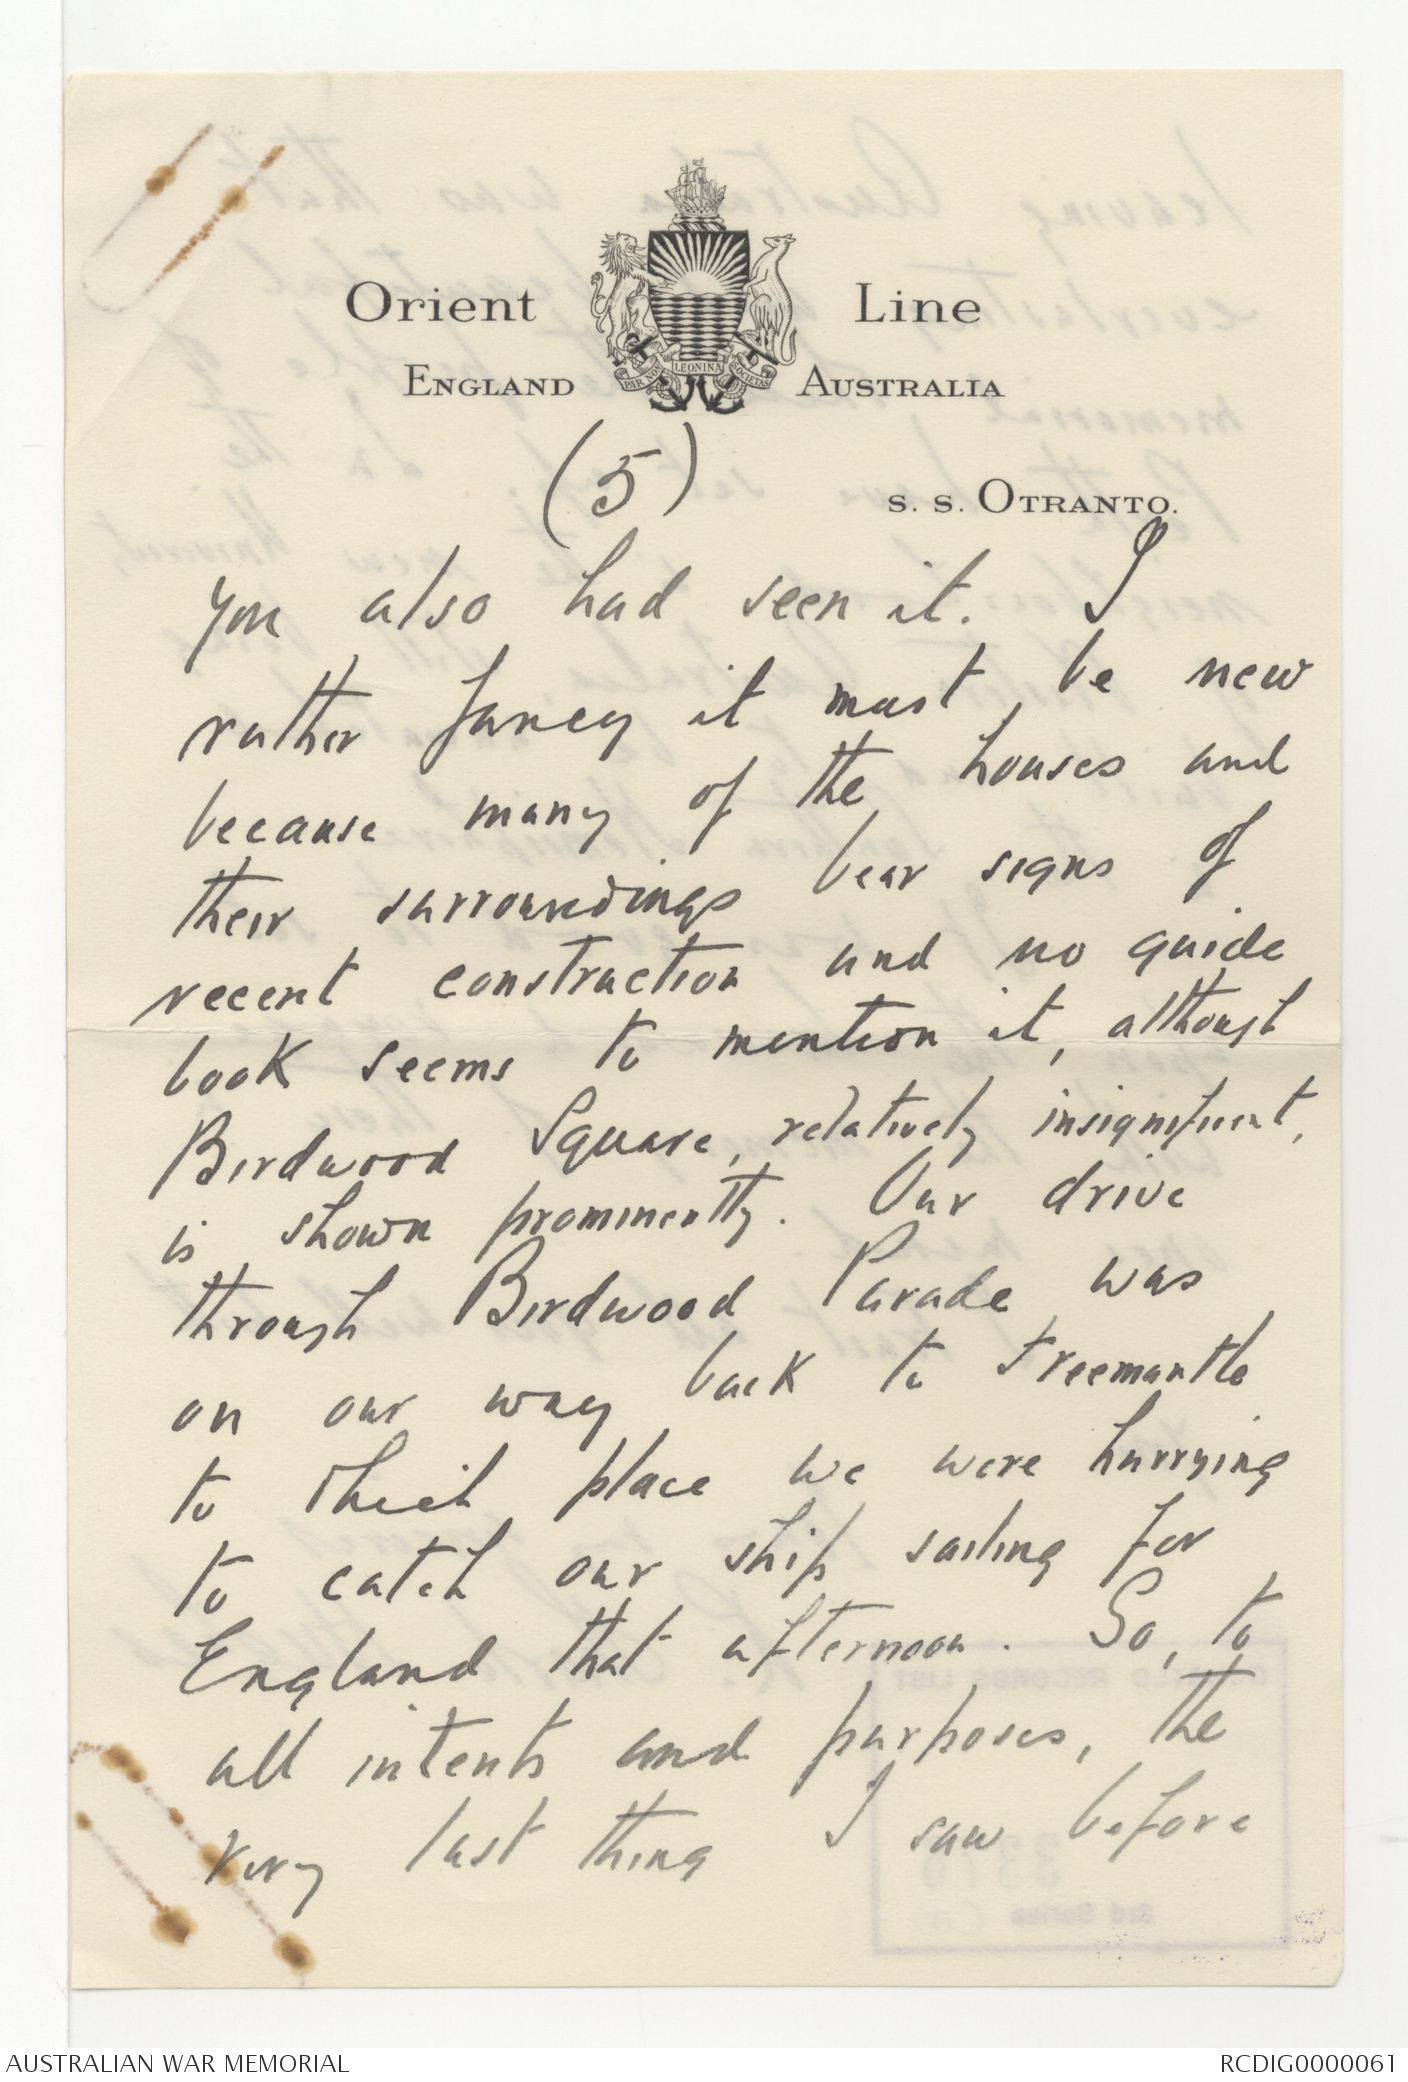 Orient Line
ENGLAND AUSTRALIA
PAR NON LEONINA SOCIETAS
(5)
S. S. OTRANTO.
you also had seen it. I
rather fancy it must be new
because many of the houses and
their surroundings bear signs of
recent construction and no guide
book seems to mention it, although
Birdwood Square, relatively insignificant,
is shown prominently. Our drive
through Birdwood Parade was
on our way back to Freemantle
to which place we were hurrying
to catch our ship sailing for
England that afternoon. So, to
all intents and purposes, the
very last thing I saw before
3rd Series
AUSTRALIAN WAR MEMORIAL
RCDIG0000061